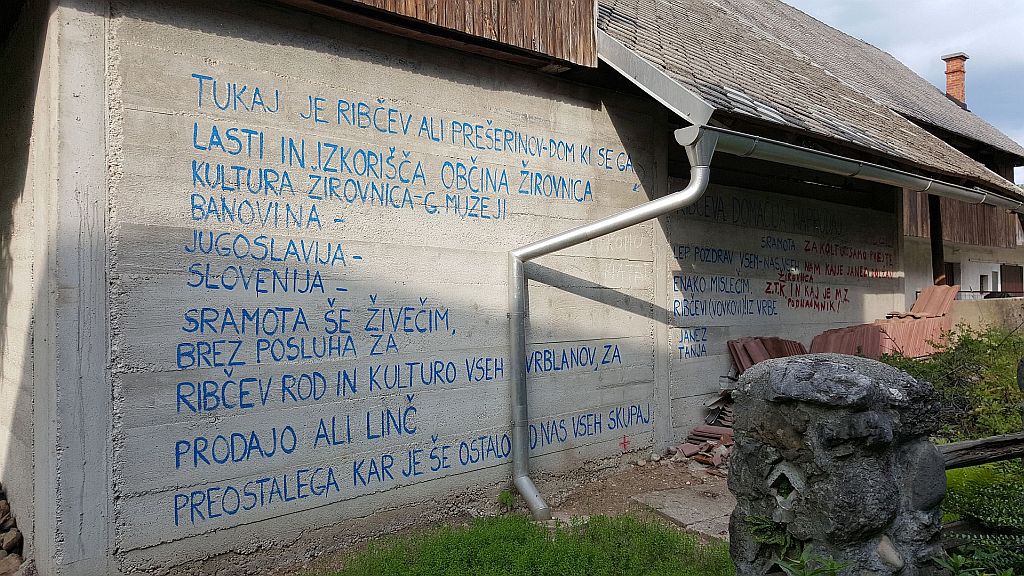 TUKAJ JE RIBČEV ALI PREŠERINOV-DOM KI SE GA
LASTI IN IZKORIŠČA OBČINA ŽIROVNICA
KULTURA ZIROVNICA-G. MUZEJI
BANOVINA -
JUGOSLAVIJA -
SLOVENIJA -
SRAMOTA ŠE ŽIVEČIM,
BREZ POSLUHA ZA
RIBČEV ROD IN KULTURO VSEH VRBLANOV, ZA
PRODAJO ALI LINČ
PREOSTALEGA KAR JE ŠE OSTALO OD NAS VSEH SKUPAJ
RIBČEVA DOMAČIJA
SRAMOTA ZA KOLTURI SAMO
LEP POZDRAV VSEH-NAS VSEH NAM KAJ JE JANEZ
ENAKO MISLEČIM ŽIROVNICA
Z.T.K IN KAJ JE M Z
RIBČEVI (VOVKOVI) IZ VRBE
JANEZ
TANJA